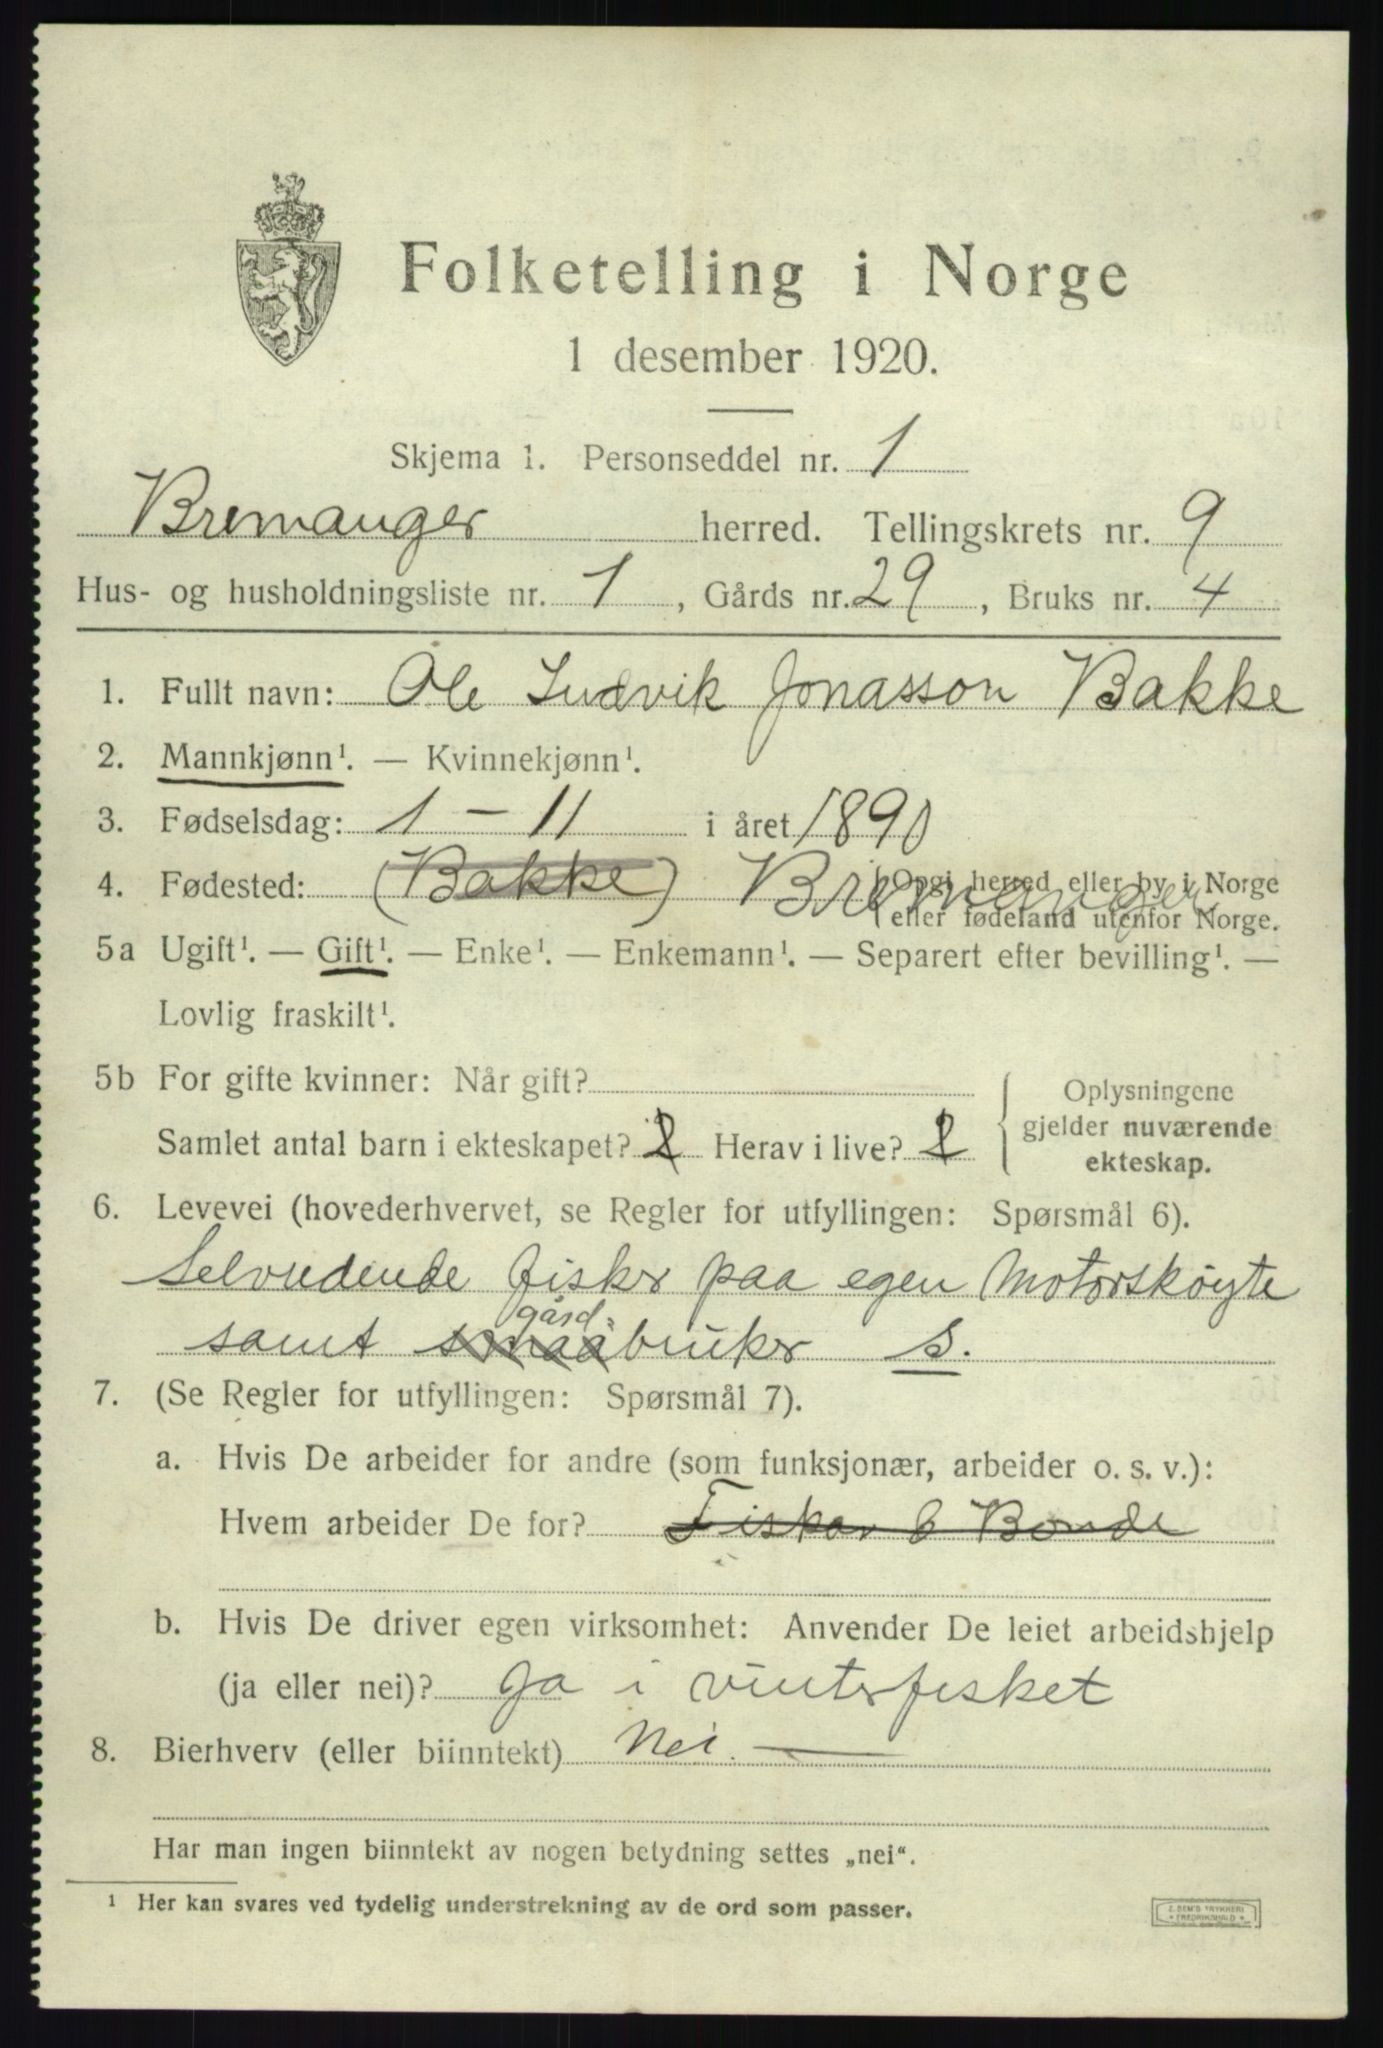 Folketelling i Norge
1 desember 1920.
Skjema 1. Personseddel nr. 1
Bremanger herred. Tellingskrets nr. 9
Hus- og husholdningsliste nr. 1, Gårds nr. 29, Bruks nr. 4
1. Fullt navn: Ole Ludvik Jonasson Bakke
2. Mannkjønn¹. — Kvinnekjønn¹.
3. Fødselsdag: 1 - 11 i året 1890
4. Fødested: (Bakke) Bremanger { Opgi herred eller by i Norge
eller fødeland utenfor Norge.
5a Ugift¹. — Gift¹. — Enke¹. — Enkemann¹. — Separert efter bevilling¹. —
Lovlig fraskilt¹.
5b For gifte kvinner: Når gift?
Samlet antal barn i ekteskapet? Herav i live?
Oplysningene
gjelder nuværende
ekteskap.
6. Levevei (hovederhvervet, se Regler for utfyllingen: Spørsmål 6).
Selvredende fisker paa egen Motorskøyte
gård
samt smaabruker S.
7. (Se Regler for utfyllingen: Spørsmål 7).
a. Hvis De arbeider for andre (som funksjonær, arbeider o. s. v.):
Hvem arbeider De for? Fisker & Bonde
b. Hvis De driver egen virksomhet: Anvender De leiet arbeidshjelp
(ja eller nei)? Ja i vinterfisket
8. Bierhverv (eller biinntekt) Nei. —
Har man ingen biinntekt av nogen betydning settes „nei“.
¹ Her kan svares ved tydelig understrekning av de ord som passer.
E. SEM'S TRYKKERI
FREDRIKSHALD